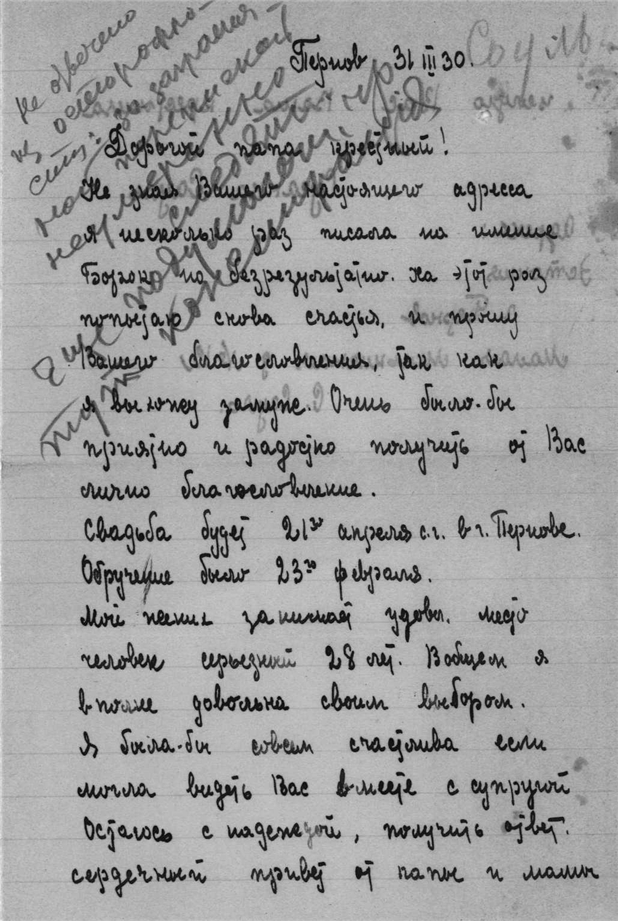 Пернов 31 III 30.
Дорогой папа крестный!
Не зная Вашего настоящего адресса
я несколько раз писала на имение
но безрезультатно. На этот раз
попытаю снова счастья, и прошу
Вашего благословления, так как
я выхожу замуж. Очень было-бы
приятно и радостно получить от Вас
лично благословление.
Свадьба будет 21го апреля с.г. в г. Пернове.
Обручение было 23го февраля.
Мой жених занимает удовл. место
человек серьезный 28 лет. Вобщем я
вполне довольна своим выбором.
Я была-бы совсем счастлива если
могла видеть Вас вместе с супругой
Остаюсь с надеждой, получить ответ.
сердечный привет от папы и мамы
Не отвечено
из осторожно-
сти: за заграни-